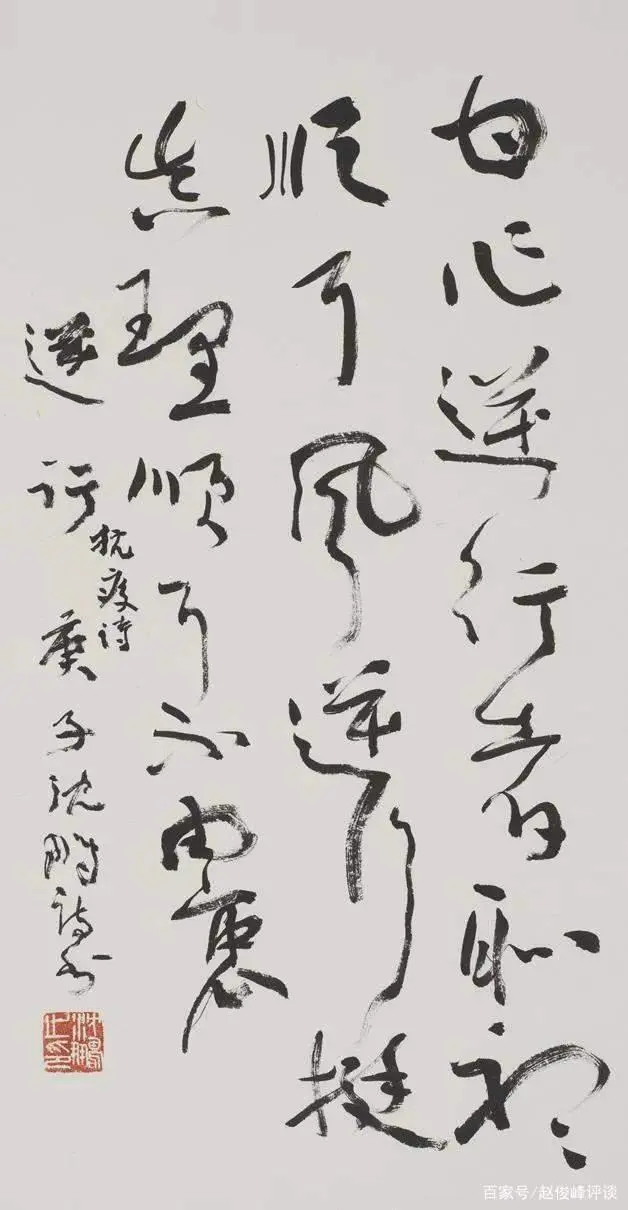 甘心逆行者耻
顺耳风逆行挺
真理顺耳不由衷
逆行
抗疫诗
庚子沈鹏诗书
沈鹏之印
百家号/赵俊峰评谈